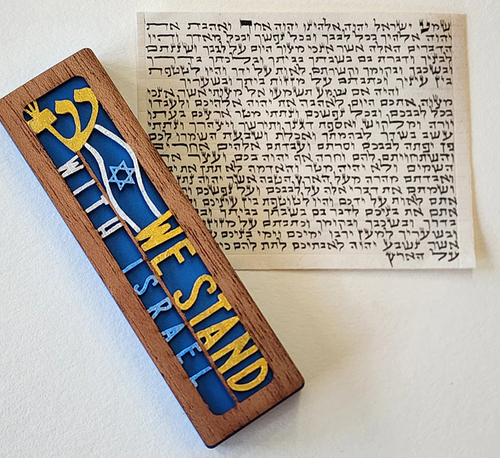 שמע ישראל יהוה אלהינו יהוה אחד ואהבת את
יהוה אלהיך בכל לבבך ובכל נפשך ובכל מאדך והיו
הדברים האלה אשר אנכי מצוך היום על לבבך ושננתם
לבניך ודברת בם בשבתך בביתך ובלכתך בדרך
ובשכבך ובקומך וקשרתם לאות על ידך והיו לטטפת
בין עיניך וכתבתם על מזזות ביתך ובשעריך
והיה אם שמע תשמעו אל מצותי אשר אנכי
מצוה אתכם היום לאהבה את יהוה אלהיכם ולעבדו
בכל לבבכם ובכל נפשכם ונתתי מטר ארצכם בעתו
יורה ומלקוש ואספת דגנך ותירשך ויצהרך ונתתי
עשב בשדך לבהמתך ואכלת ושבעת השמרו
פן יפתה לבבכם וסרתם ועבדתם אלהים
והשתחויתם להם וחרה אף יהוה בכם ועצר
השמים ולא יהיה מטר והאדמה לא תתן את
ואבדתם מהרה מעל הארץ הטבה אשר יהוה
ושמתם את דברי אלה על לבבכם ועל נפשכם
אתם לאות על ידכם והיו לטוטפת בין עיניכם
אתם את בניכם לדבר בם בשבתך בביתך
בדרך ובשכבך ובקומך וכתבתם על מזוזות
ובשעריך למען ירבו ימיכם וימי בניכם
אשר נשבע יהוה לאבתיכם לתת להם
על הארץ
ש
WE STAND
WITH ISRAEL